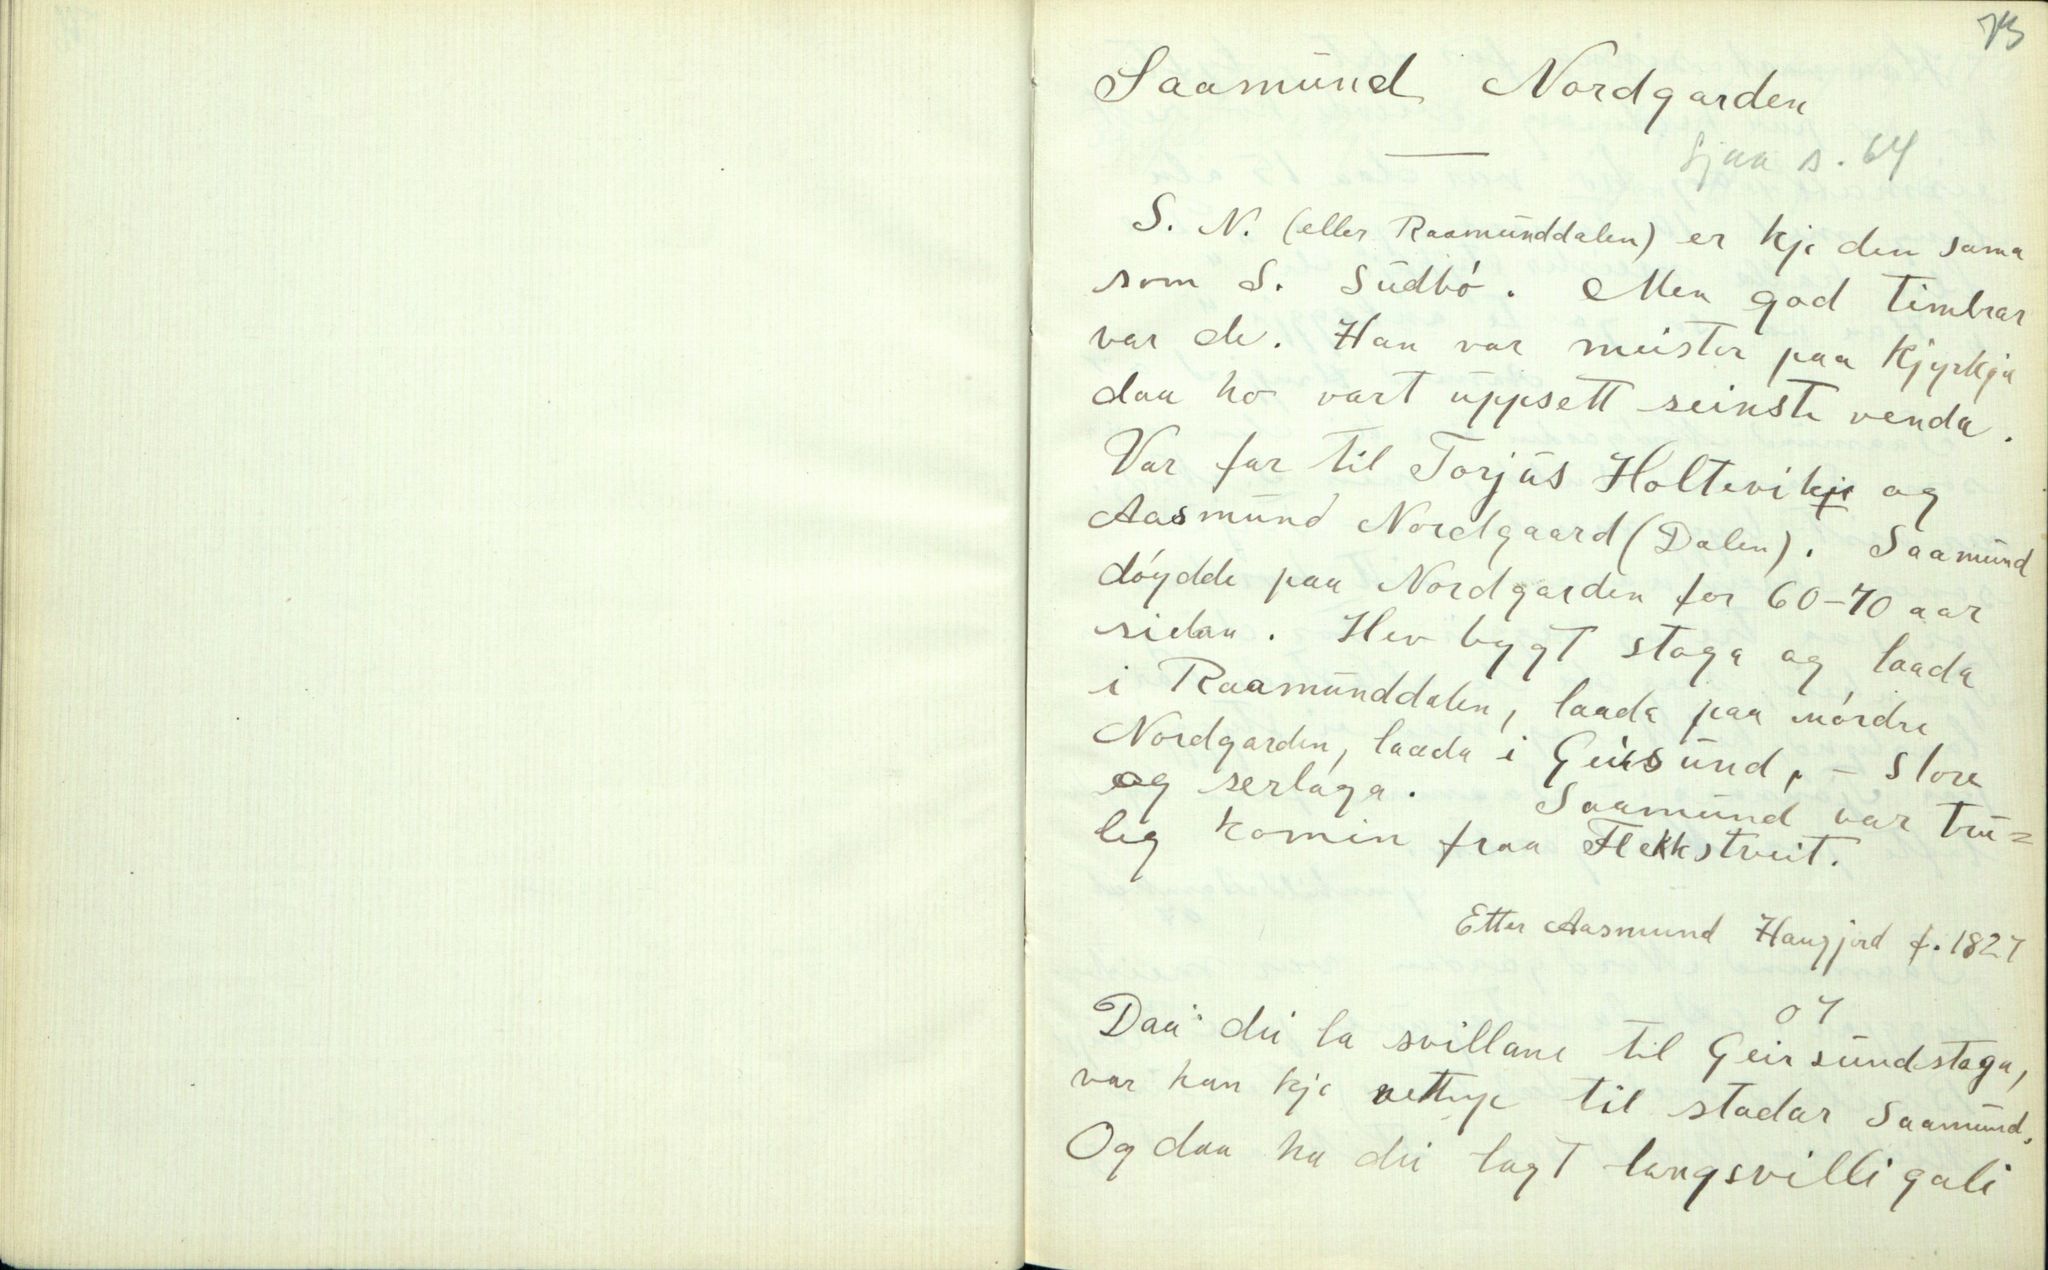 73
Saamund Nordgarden
Sjaa s. 64
S. N. (eller Raamunddalen) er kje den sama
som S. Sudbó. Men god timbrar
var de. Han var meister paa kjyrkja
daa ho vart uppsett seinste venda.
Var far til Torjus Holtevikje og
Aasmund Nordgaard (Dalen). Saamund
dóydde paa Nordgarden for 60-70 aar
sidan. Hev bygt stoga og laada
i Raamunddalen, laada paa nórdre
Nordgarden, laada i Geirsund, - store
og serlaga. Saamund var tru=
leg komin fraa Flekkstveit.
Etter Aasmund Haugjord f. 1827
07
Daa dei la svillane til Geirsundstoga,
var han kje til stadar Saamund.
Og daa ha dei lagt langsvilli gali